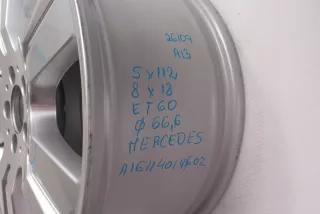 26109
A13
5 x 112
8 x 18
ET60
Ø 66,6
MERCEDES
A1644014602